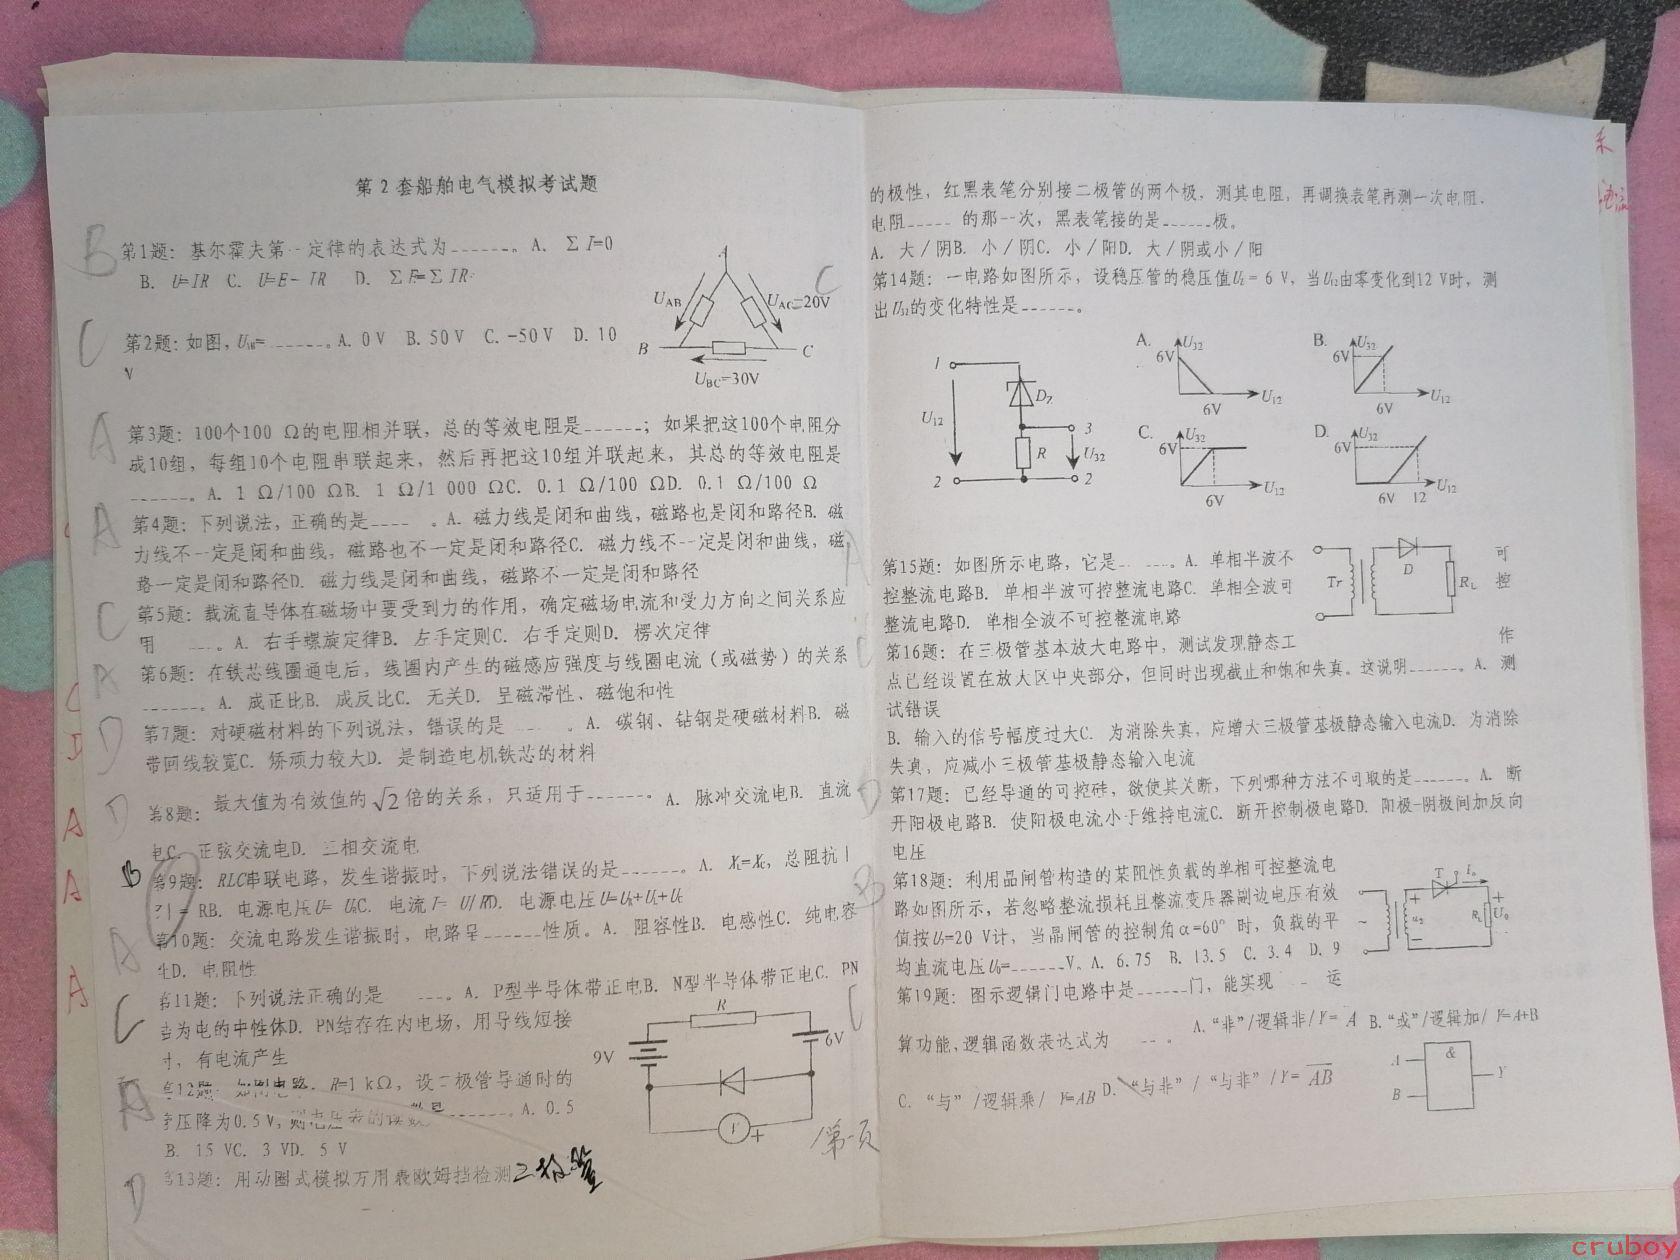 第2套船舶电气模拟考试题
B
第1题：基尔霍夫第一定律的表达式为______。A. ΣI=0
B. U=IR C. U=E-IR D. ΣE=ΣIR
C
第2题：如图，UAB=______。A. 0 V B. 50 V C. -50 V D. 10
V
A
UAB
UAC=20V
B
C
UBC=30V
A
第3题：100个100 Ω的电阻相并联，总的等效电阻是______；如果把这100个电阻分
成10组，每组10个电阻串联起来，然后再把这10组并联起来，其总的等效电阻是
______。A. 1 Ω/100 ΩB. 1 Ω/1 000 ΩC. 0.1 Ω/100 ΩD. 0.1 Ω/100 Ω
A
第4题：下列说法，正确的是____ 。A. 磁力线是闭和曲线，磁路也是闭和路径B. 磁
力线不一定是闭和曲线，磁路也不一定是闭和路径C. 磁力线不一定是闭和曲线，磁
路一定是闭和路径D. 磁力线是闭和曲线，磁路不一定是闭和路径
C
第5题：载流直导体在磁场中要受到力的作用，确定磁场电流和受力方向之间关系应
用 ___。A. 右手螺旋定律B. 左手定则C. 右手定则D. 楞次定律
A
第6题：在铁芯线圈通电后，线圈内产生的磁感应强度与线圈电流（或磁势）的关系
______。A. 成正比B. 成反比C. 无关D. 呈磁滞性、磁饱和性
D
第7题：对硬磁材料的下列说法，错误的是 ___ 。A. 碳钢、钴钢是硬磁材料B. 磁
带回线较宽C. 矫顽力较大D. 是制造电机铁芯的材料
D
第8题：最大值为有效值的√2倍的关系，只适用于______。A. 脉冲交流电B. 直流
电C. 正弦交流电D. 三相交流电
B
第9题：RLC串联电路，发生谐振时，下列说法错误的是______。A. XL=XC，总阻抗|
Z| = RB. 电源电压U= URC. 电流I= U/RD. 电源电压U=UR+UL+UC
第10题：交流电路发生谐振时，电路呈______性质。A. 阻容性B. 电感性C. 纯电容
性D. 电阻性
A
第11题：下列说法正确的是 ___。A. P型半导体带正电B. N型半导体带正电C. PN
为电的中性体D. PN结存在内电场，用导线短接
时，有电流产生
C
第12题：如图电路，R=1 kΩ，设二极管导通时的
压降为0.5 V，则电压表的读数是______。A. 0.5
B. 15 VC. 3 VD. 5 V
A
R
9V
6V
V
+
第13题：用动圈式模拟万用表欧姆挡检测二极管
D
第一页
的极性，红黑表笔分别接二极管的两个极，测其电阻，再调换表笔再测一次电阻，
电阻_____ 的那一次，黑表笔接的是______极。
A. 大／阴B. 小／阴C. 小／阳D. 大／阴或小／阳
C
第14题：一电路如图所示，设稳压管的稳压值UZ = 6 V，当U12由零变化到12 V时，测
出U32的变化特性是______。
1
U12
2
DZ
R
3
U32
2
A. U32 6V 6V U12
B. U32 6V 6V U12
C. U32 6V 6V U12
D. U32 6V 6V 12 U12
A
第15题：如图所示电路，它是_ ___。A. 单相半波不可
控整流电路B. 单相半波可控整流电路C. 单相全波可控
整流电路D. 单相全波不可控整流电路
Tr
D
RL
C
第16题：在三极管基本放大电路中，测试发现静态工作
点已经设置在放大区中央部分，但同时出现截止和饱和失真。这说明______。A. 测
试错误
B. 输入的信号幅度过大C. 为消除失真，应增大三极管基极静态输入电流D. 为消除
失真，应减小三极管基极静态输入电流
D
第17题：已经导通的可控硅，欲使其关断，下列哪种方法不可取的是______。A. 断
开阳极电路B. 使阳极电流小于维持电流C. 断开控制极电路D. 阳极-阴极间加反向
电压
B
第18题：利用晶闸管构造的某阻性负载的单相可控整流电
路如图所示，若忽略整流损耗且整流变压器副边电压有效
值按U2=20 V计，当晶闸管的控制角α=60° 时，负载的平
均直流电压U0=______V。A. 6.75 B. 13.5 C. 3.4 D. 9
T
Io
~
+
u2
−
RL
+
U0
−
C
第19题：图示逻辑门电路中是______门，能实现 __ 运
算功能,逻辑函数表达式为 __ 。
A.“非”/逻辑非/Y= A B.“或”/逻辑加/ Y=A+B
C. “与” /逻辑乘/ Y=AB D. “与非” / “与非” /Y= A̅B̅
A
B
&
Y
A
A
A
cruboy